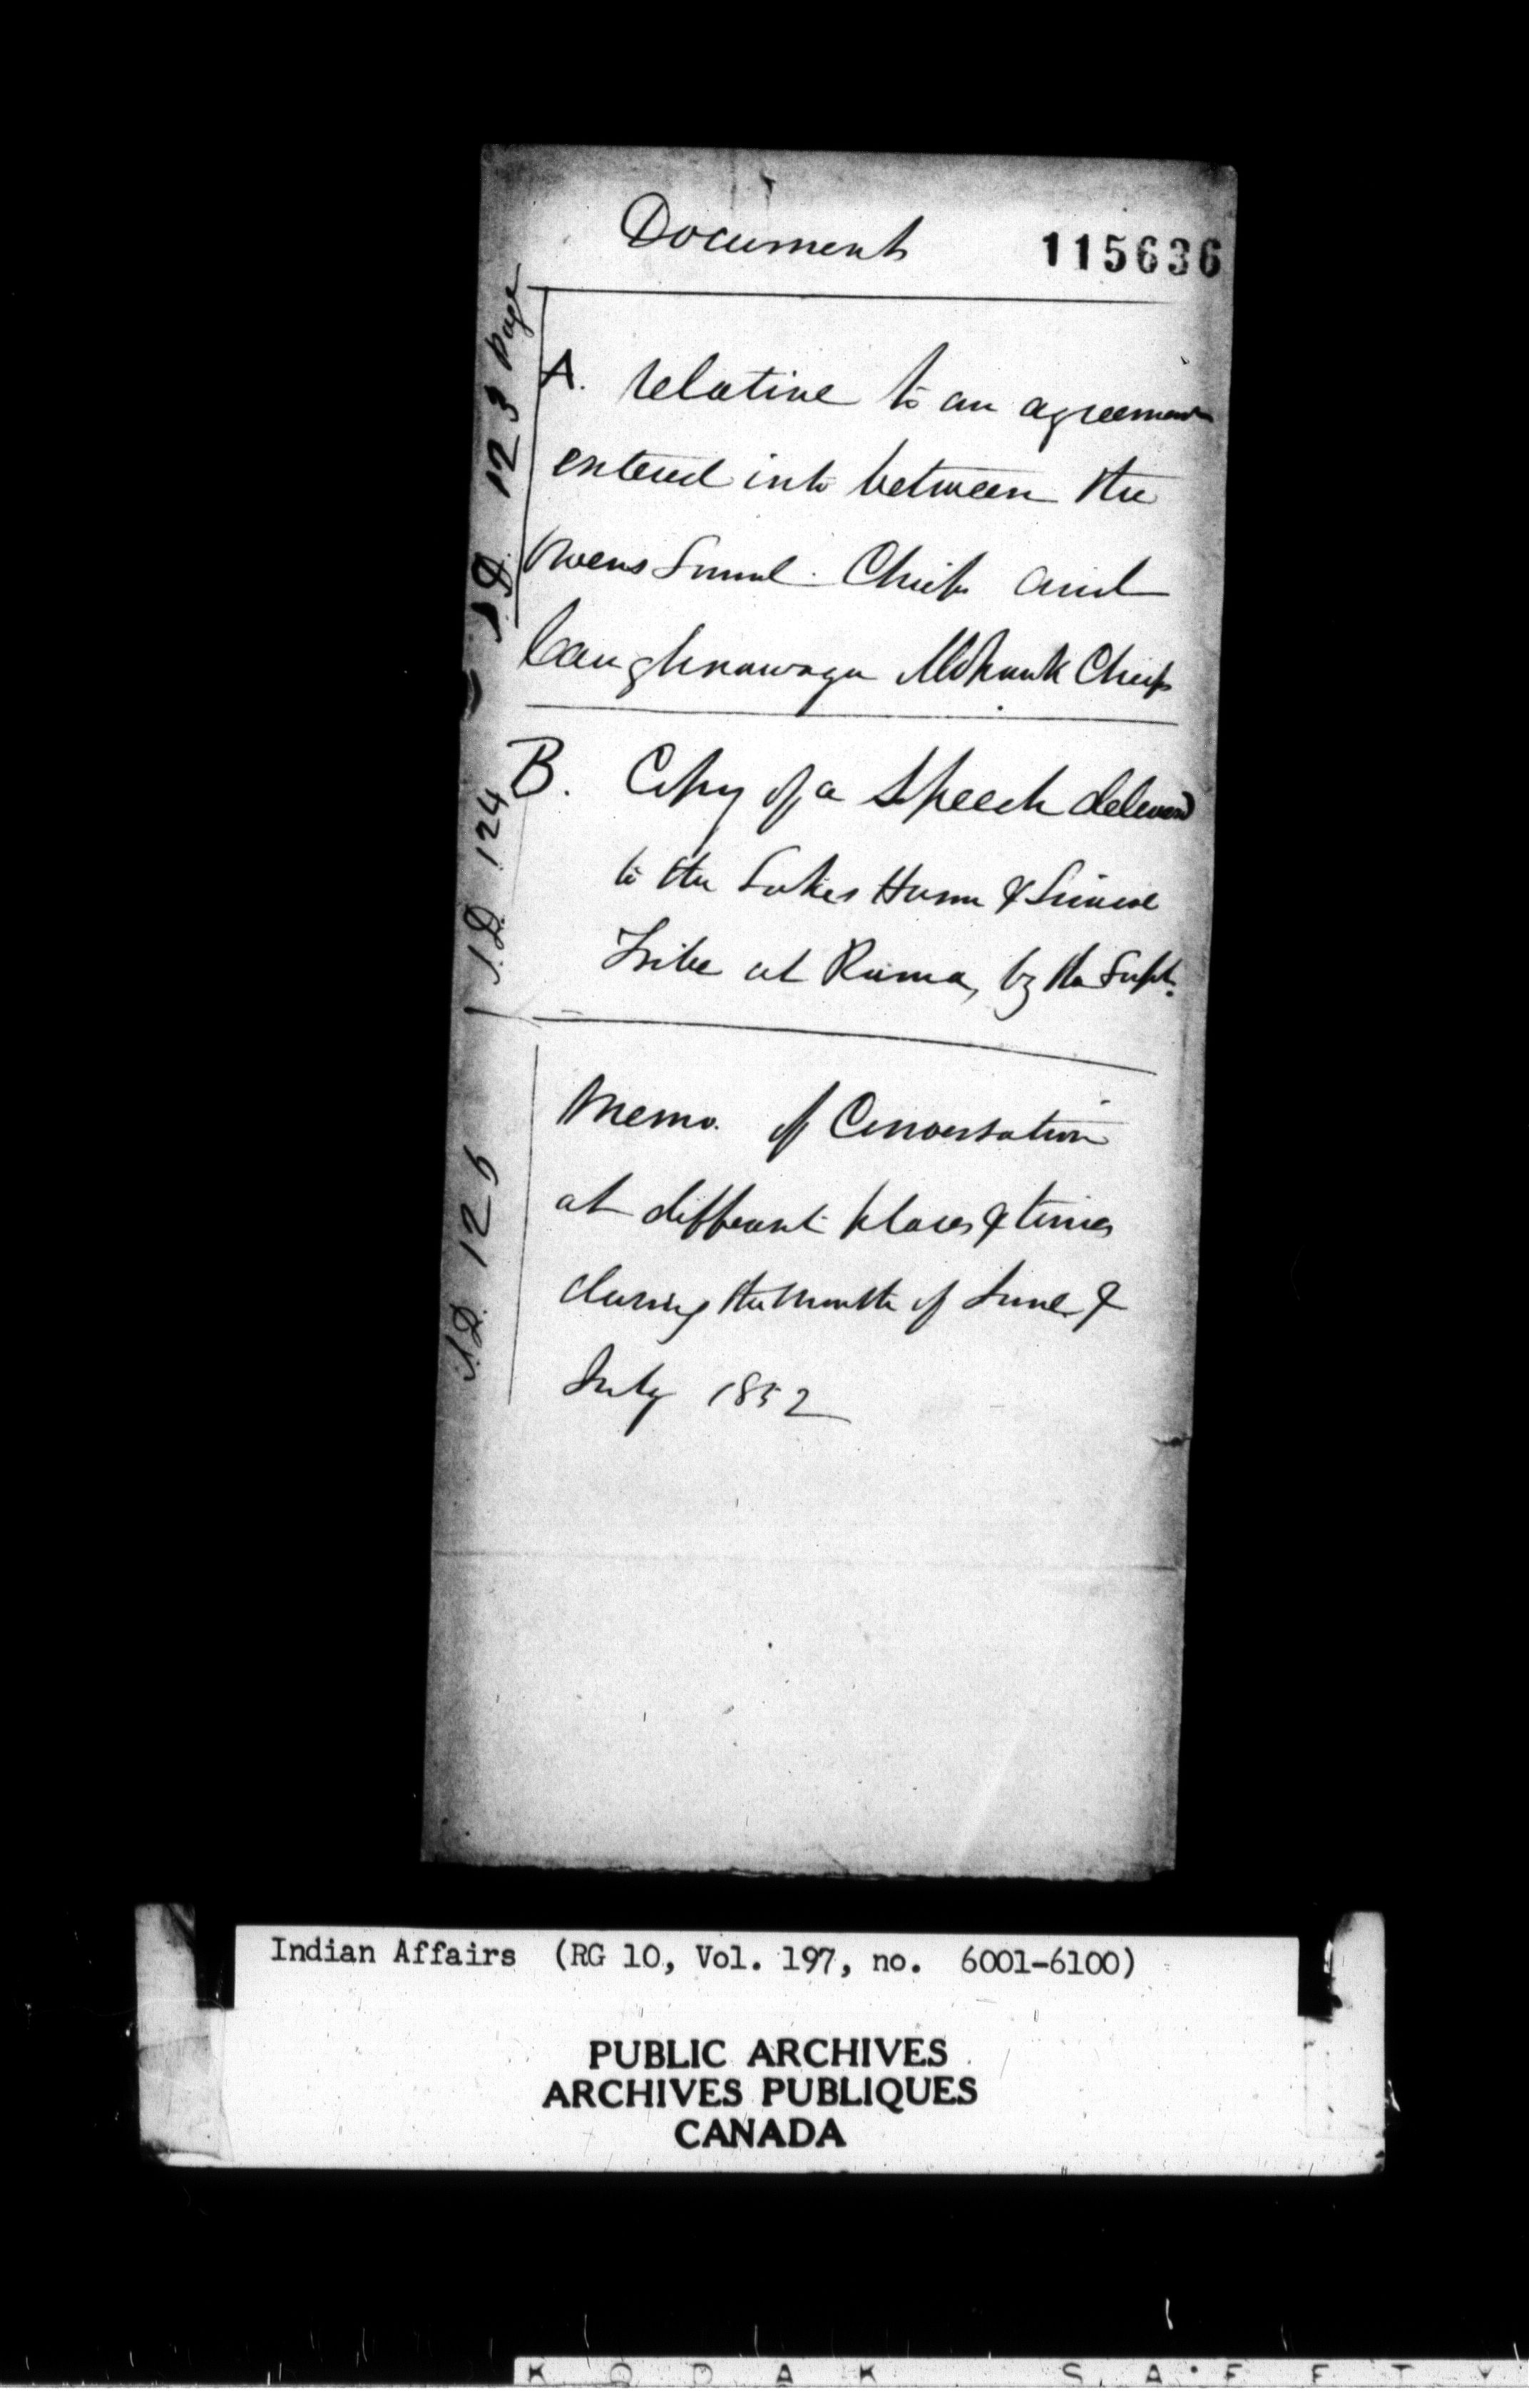 Documents 115636
A. relative to an agreement
entered into between the
Owens Sound Chiefs and
Caughnawaga Mohawk Chiefs
B. Copy of a Speech delivered
to the Lakes Huron & Simcoe
Tribe at Rama, by the Supt.
Memo. of Conversation
at different places & times
during the month of June &
July 1852
S.D. 123 Page
S.D. 124
S.D. 126
Indian Affairs (RG 10, Vol. 197, no. 6001-6100)
PUBLIC ARCHIVES
ARCHIVES PUBLIQUES
CANADA
KODAK SAFETY